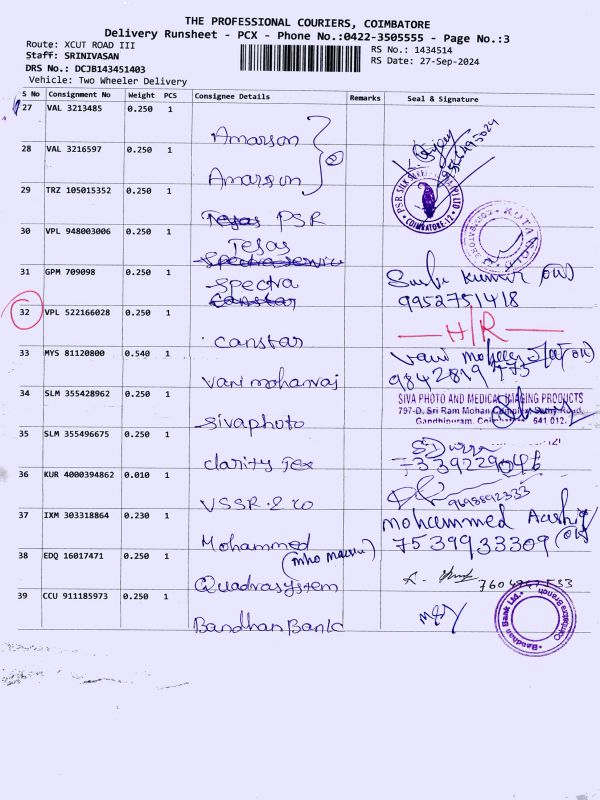 THE PROFESSIONAL COURIERS, COIMBATORE
Delivery Runsheet - PCX - Phone No.:0422-3505555 - Page No.:3
Route: XCUT ROAD III
RS No.: 1434514
Staff: SRINIVASAN
RS Date: 27-Sep-2024
DRS No.: DCJB143451403
Vehicle: Two Wheeler Delivery
S No Consignment No Weight PCS Consignee Details Remarks Seal & Signature
27 VAL 3213485 0.250 1 Amarson
28 VAL 3216597 0.250 1 Amarson
29 TRZ 105015352 0.250 1 Tejas PSR
PSR SILK
COIMBATORE-12
30 VPL 948003006 0.250 1 Tejas
Spectra service
31 GPM 709098 0.250 1 Spectra
Canstar
Kumar
9952751418
32 VPL 522166028 0.250 1 canstar
H/R
33 MYS 81120800 0.540 1 Vani mohanraj
Vani
9842819773
34 SLM 355428962 0.250 1 Sivaphoto
SIVA PHOTO AND MEDICAL IMAGING PRODUCTS
797-D, Sri Ram Mohan Complex, Sathy Road,
Gandhipuram, Coimbatore 641 012.
35 SLM 355496675 0.250 1 clarity Tex
36 KUR 4000394862 0.010 1 VSSR & co
9698592333
37 IXM 303318864 0.230 1 Mohammed
mohammed Aashiq
7539933309
38 EDQ 16017471 0.250 1 Quadrasystem
39 CCU 911185973 0.250 1 Bandhan Bank
Bandhan Bank Ltd.
Coimbatore Branch